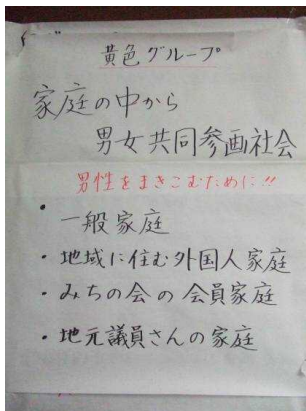 黄色グループ
家庭の中から
男女共同参画社会
男性をまきこむために!!
・一般家庭
・地域に住む外国人家庭
・みちの会の会員家庭
・地元議員さんの家庭